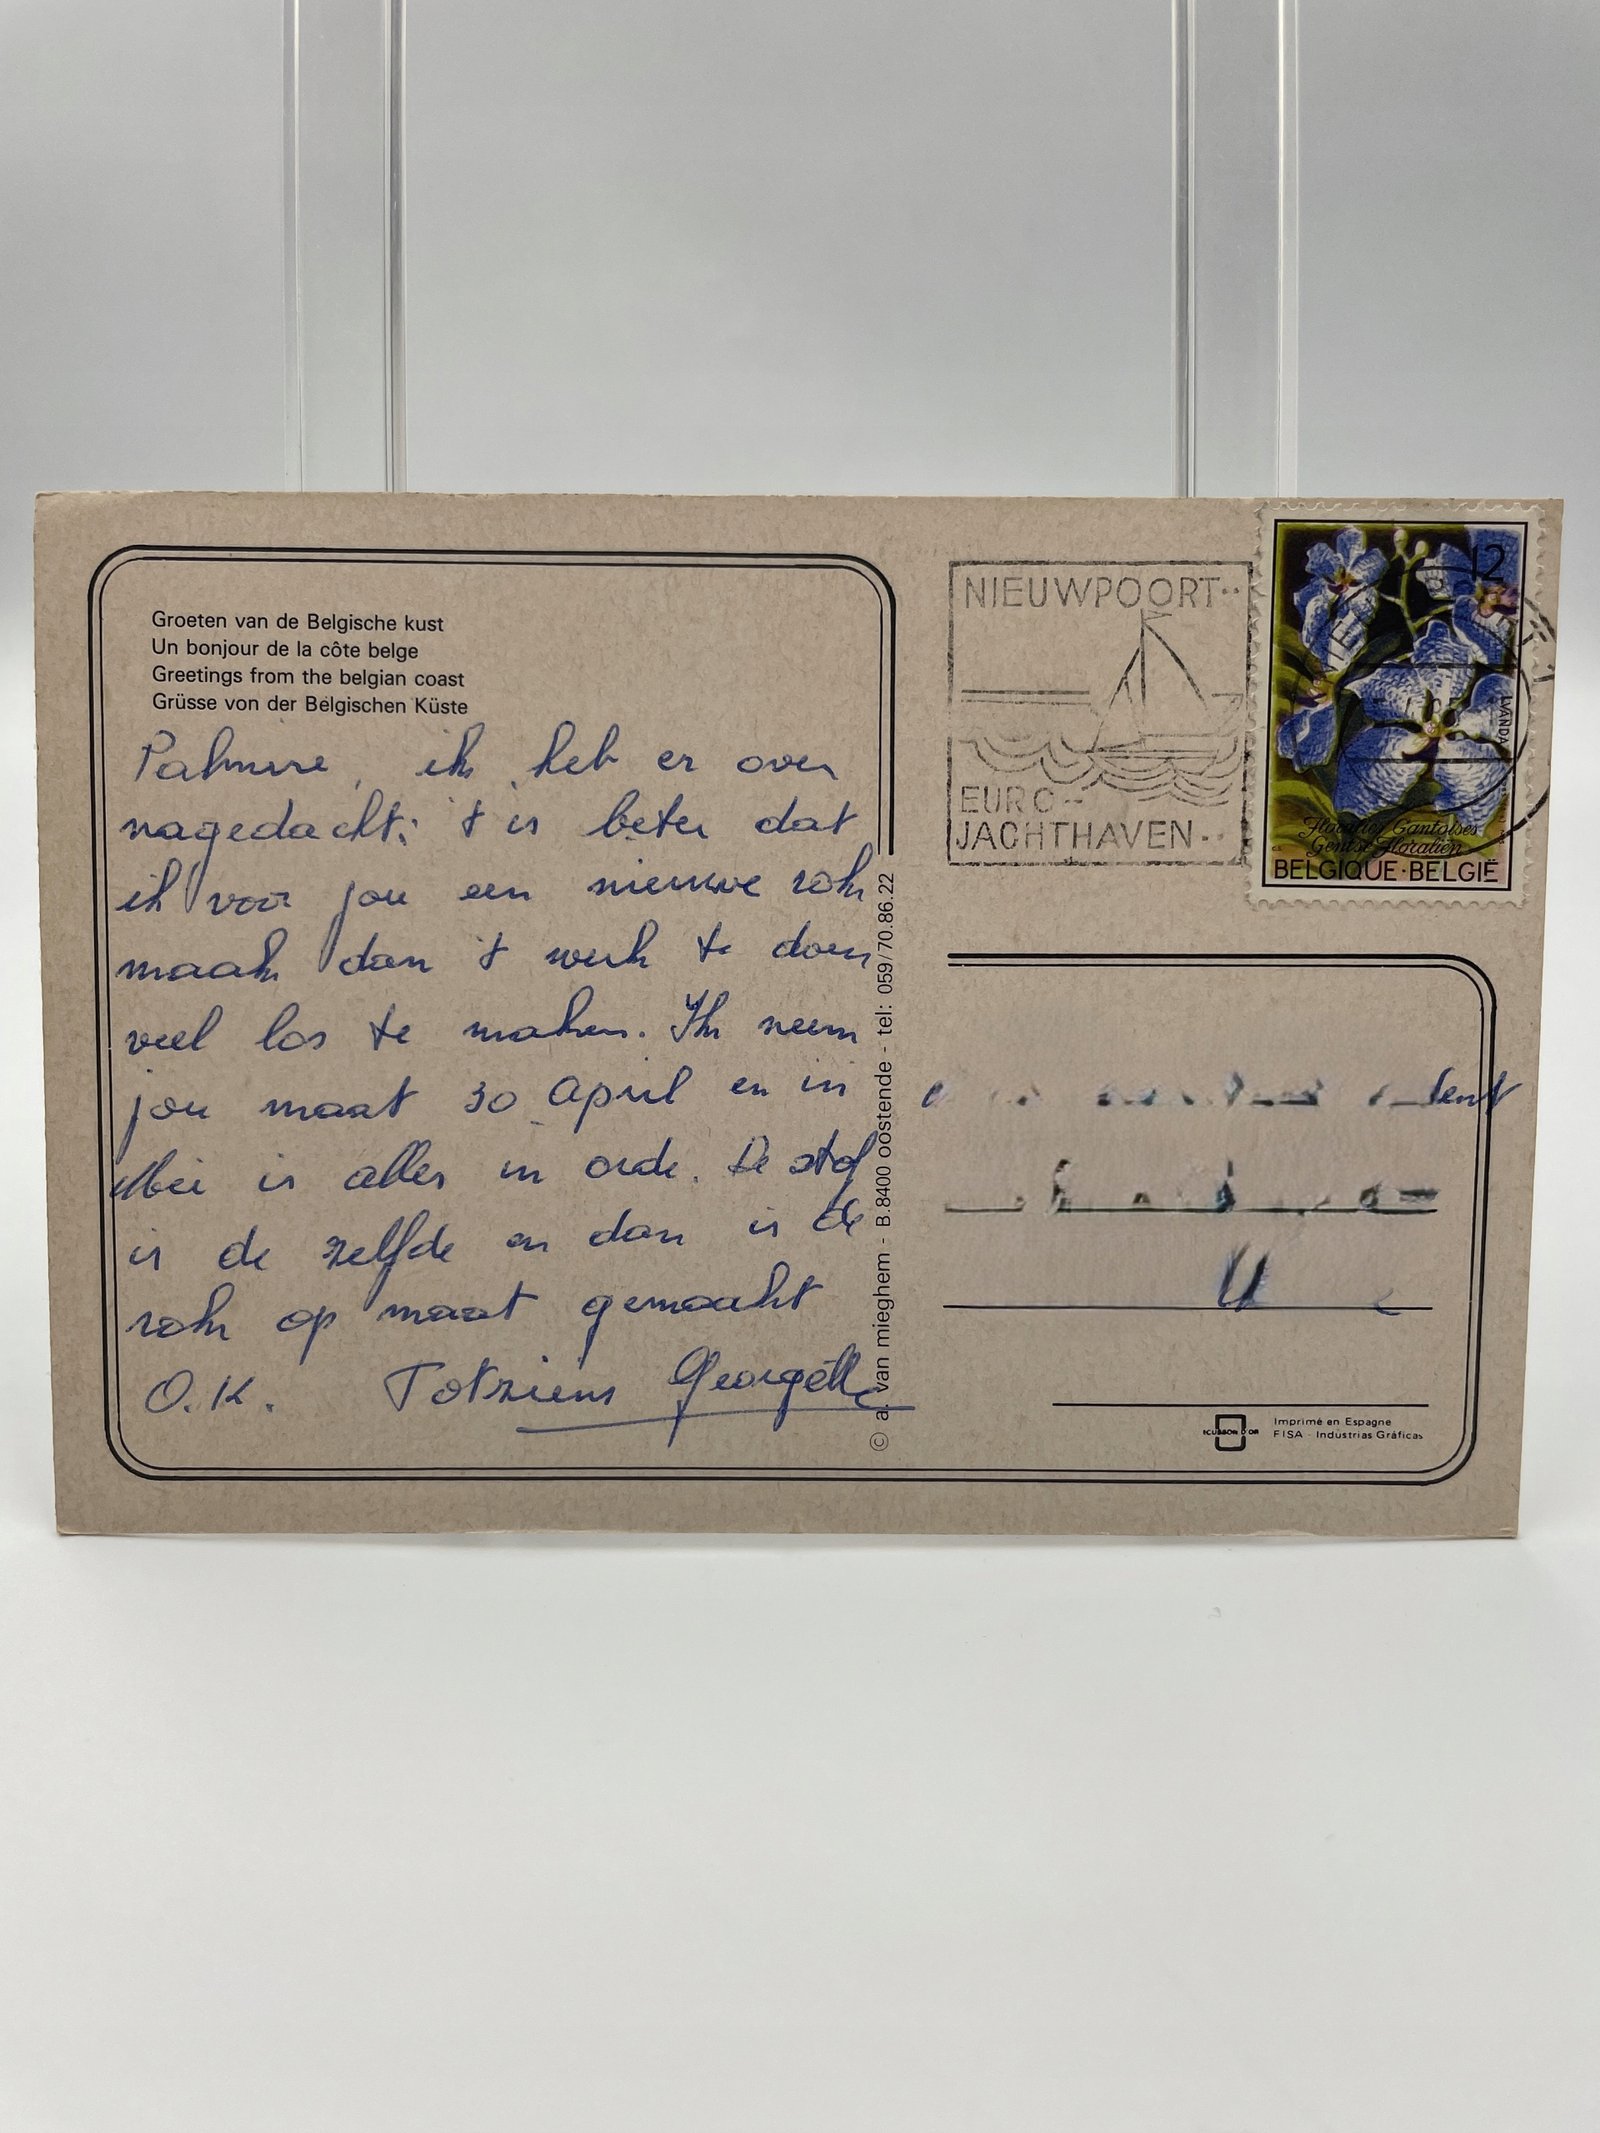 Groeten van de Belgische kust
Un bonjour de la côte belge
Greetings from the belgian coast
Grüsse von der Belgischen Küste
Palmire, ik heb er over
nagedacht: 't is beter dat
ik voor jou een nieuwe rok
maak dan 't werk te doen
veel los te maken. Ik neem
jou maat 30 April en in
Mei is alles in orde. De stof
is de zelfde en dan is de
rok op maat gemaakt
O.K. Totziens Georgette
© a. van mieghem - B.8400 oostende - tel: 059/70.86.22
NIEUWPOORT
EURO-
JACHTHAVEN
12
VANDA
Floralies Gantoises
Gentse Floraliën
BELGIQUE·BELGIË
ECUSSON D'OR
Imprimé en Espagne
FISA - Indústrias Gráficas